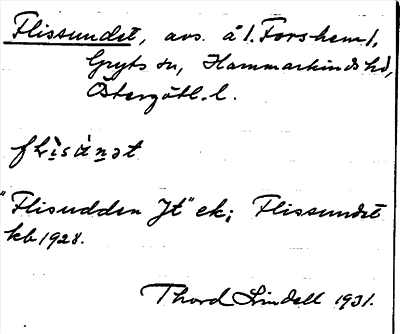 Flissundet, avs. å l. Forshem l.
Gryts sn, Hammarkinds hd,
Östergötl. l.
"Flisudden Jt" ek; Flissundet
kb 1928.
Thord Lindell 1931.